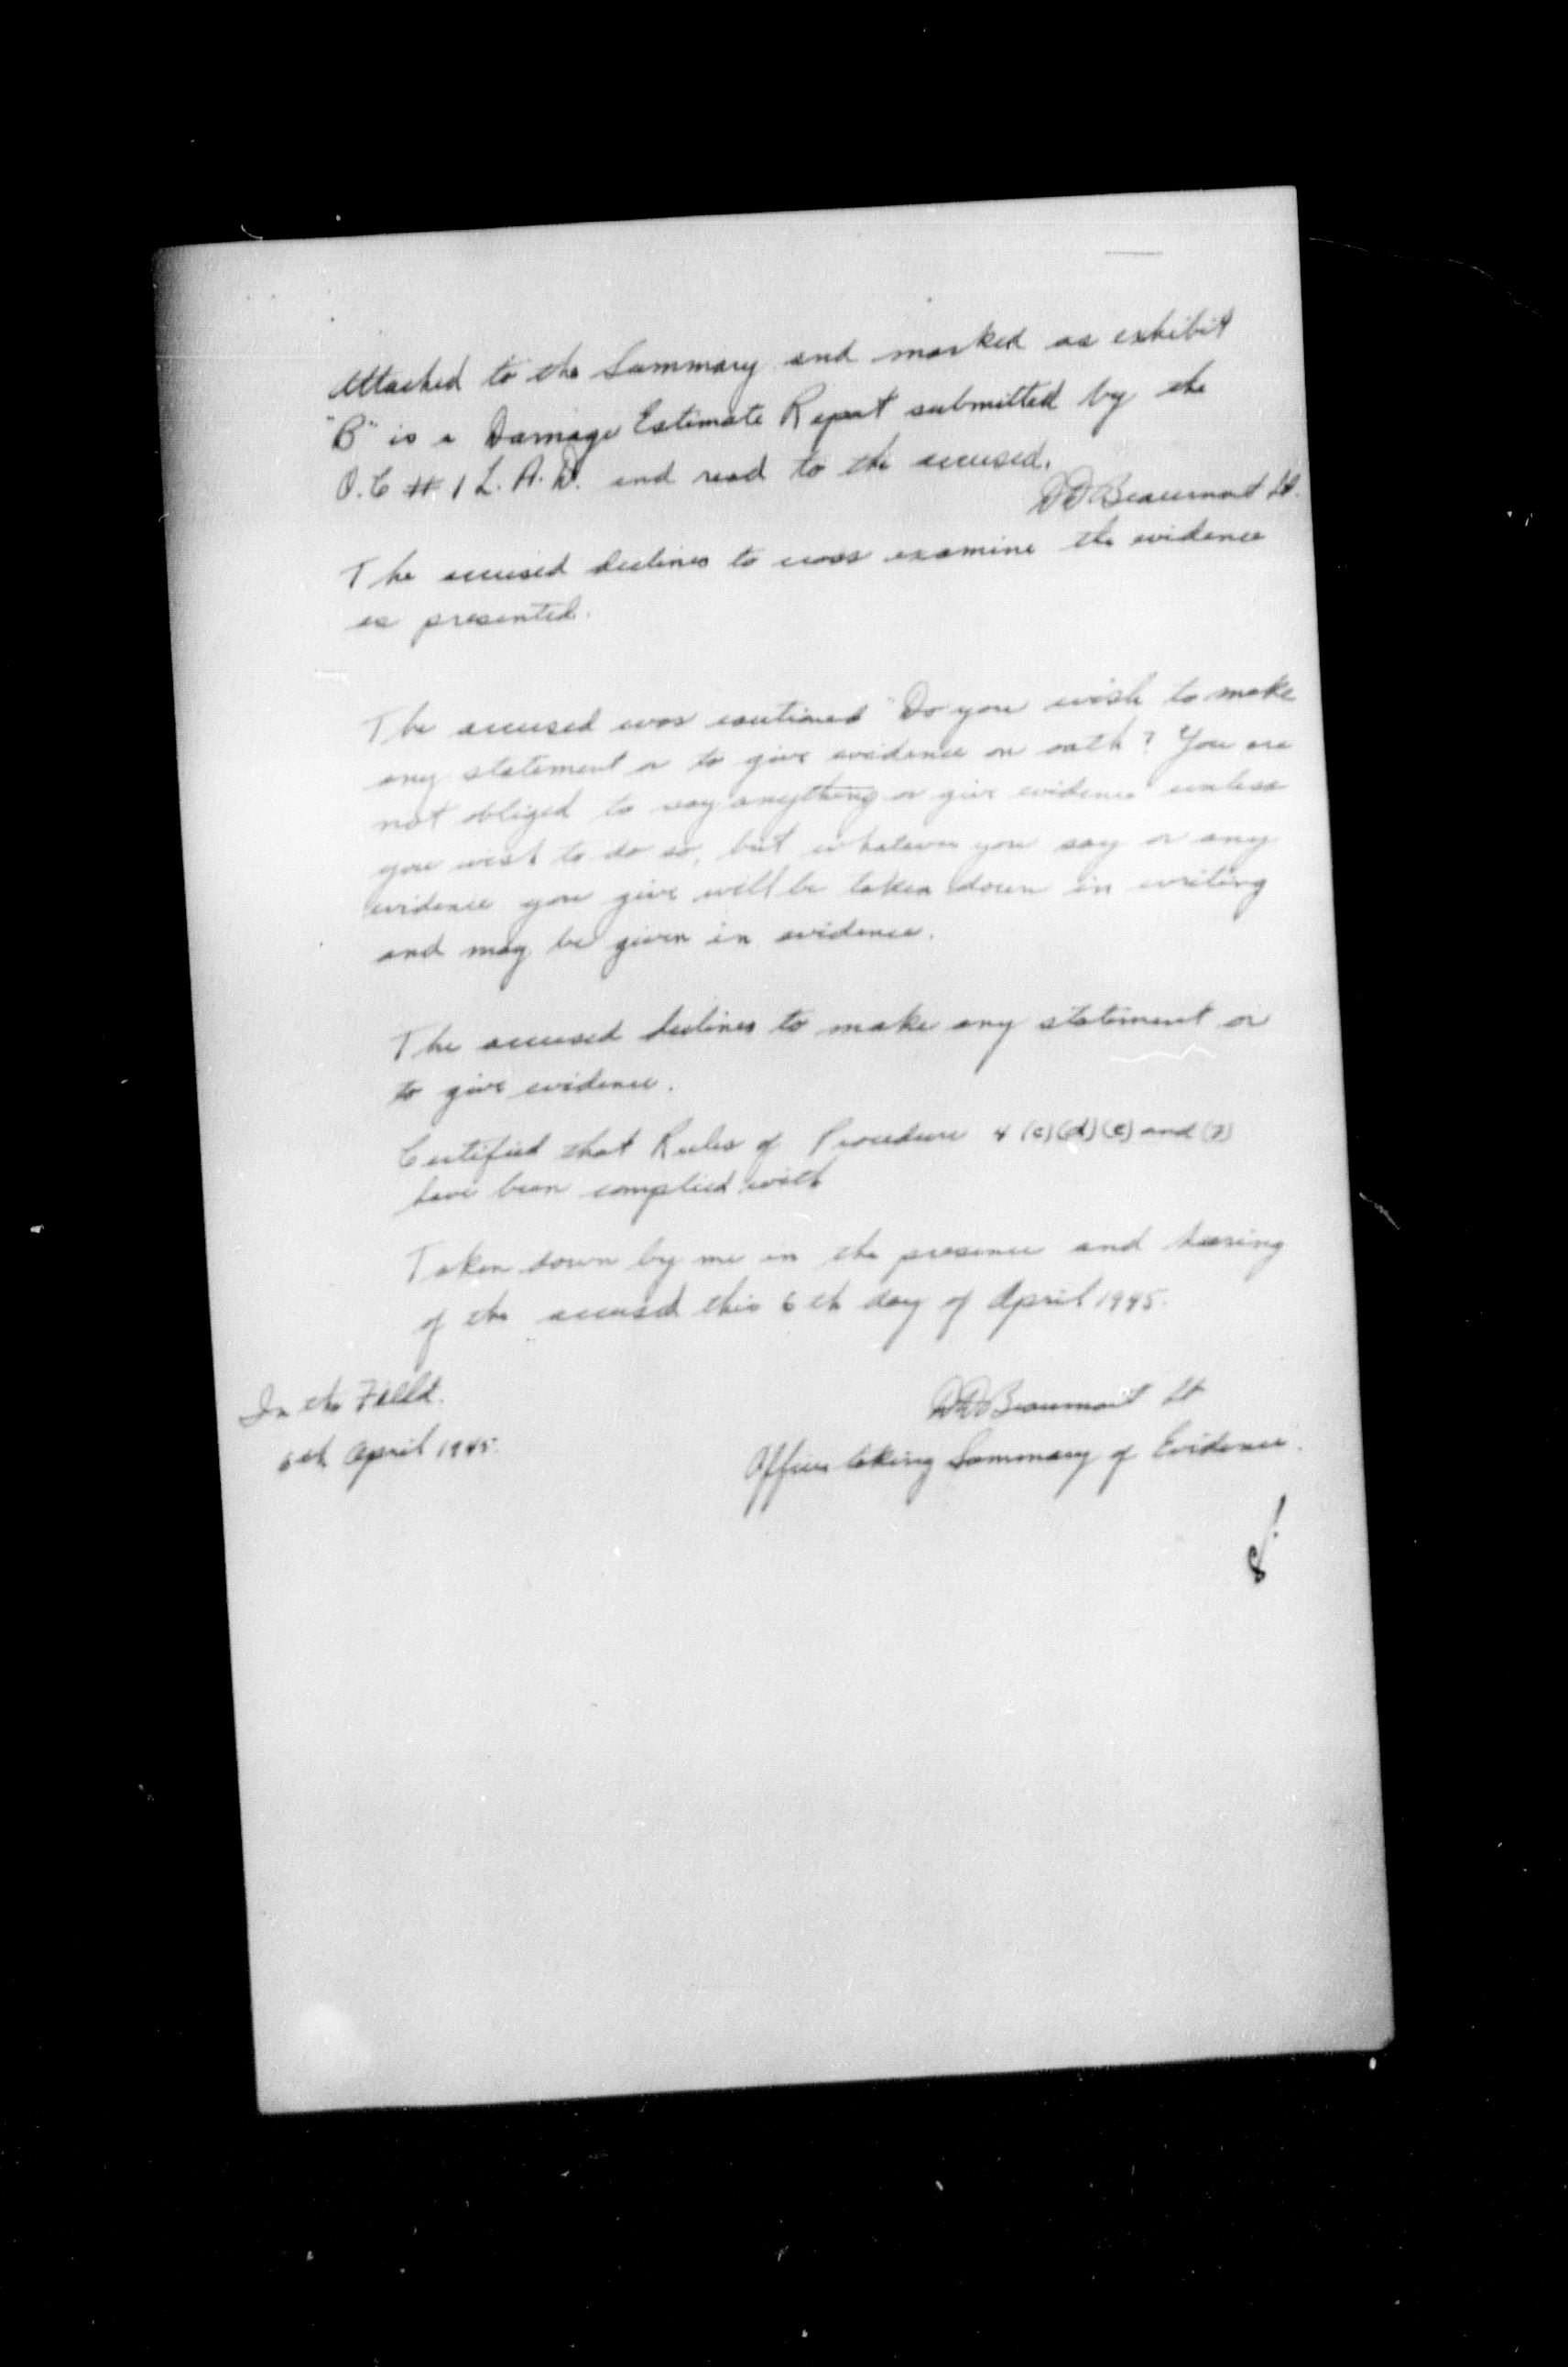 Attached to the Summary and marked as exhibit
"B" is a Damage Estimate Report submitted by the
O.C # 1 L.A.D. and read to the accused.
DD Beaumont Lt.
The accused declines to cross examine the evidence
as presented.
The accused was cautioned "Do you wish to make
any statement or to give evidence on oath? You are
not obliged to say anything or give evidence unless
you wish to do so, but whatever you say or any
evidence you give will be taken down in writing
and may be given in evidence.
The accused declines to make any statement or
to give evidence.
Certified that Rules of Procedure 4 (c)(d)(e) and
have been complied with
Taken down by me in the presence and hearing
of the accused this 6th day of April 1945.
In the Field.
6th April 1945.
DD Beaumont Lt
Officer taking Summary of Evidence.